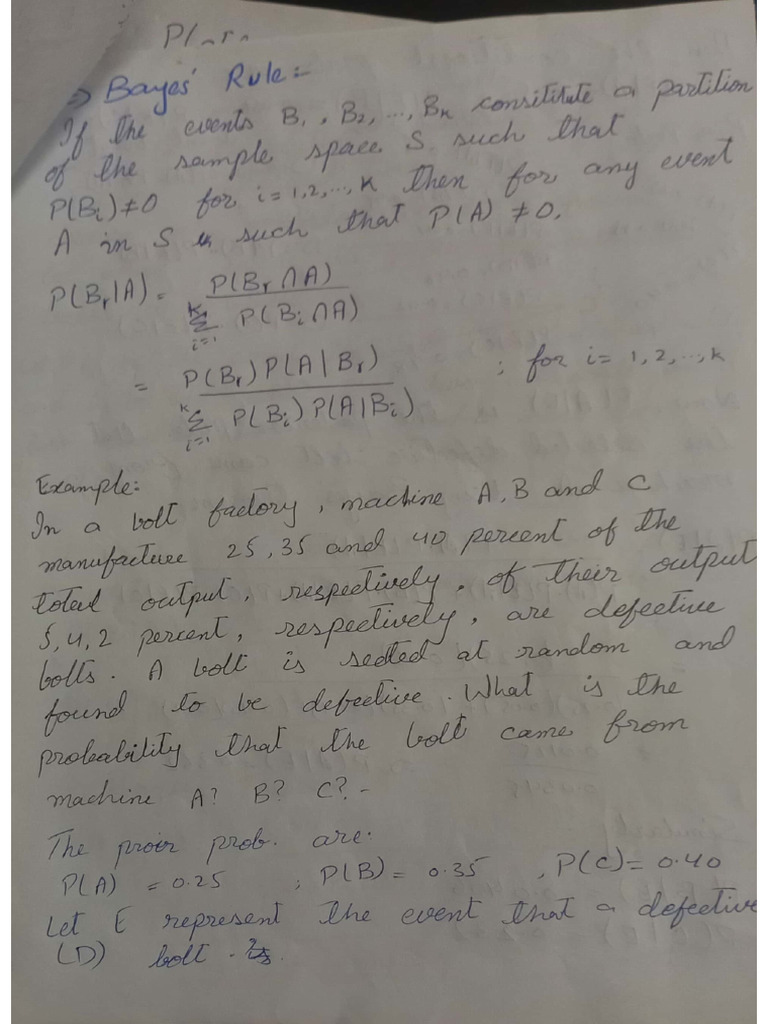 ⇒ Bayes' Rule:-
If the events B₁, B₂, ..., Bₖ consititute a partition
of the sample space S such that
P(Bᵢ)≠0 for i=1,2,..,k then for any event
A in S such that P(A) ≠0.
P(Bᵣ|A) = P(Bᵣ∩A) / Σᵏᵢ₌₁ P(Bᵢ∩A)
= P(Bᵣ)P(A|Bᵣ) / Σᵏᵢ₌₁ P(Bᵢ)P(A|Bᵢ) ; for i= 1,2,..,k
Example:
In a bolt factory, machine A, B and C
manufacture 25, 35 and 40 percent of the
total output, respectively. of their output
5,4,2 percent, respectively, are defective
bolts. A bolt is at random and
found to be defective. What is the
probability that the bolt came from
machine A? B? C?-
The prob. are:
P(A) = 0.25 ; P(B)= 0.35 , P(C)= 0.40
Let E represent the event that a defective
(D) bolt.